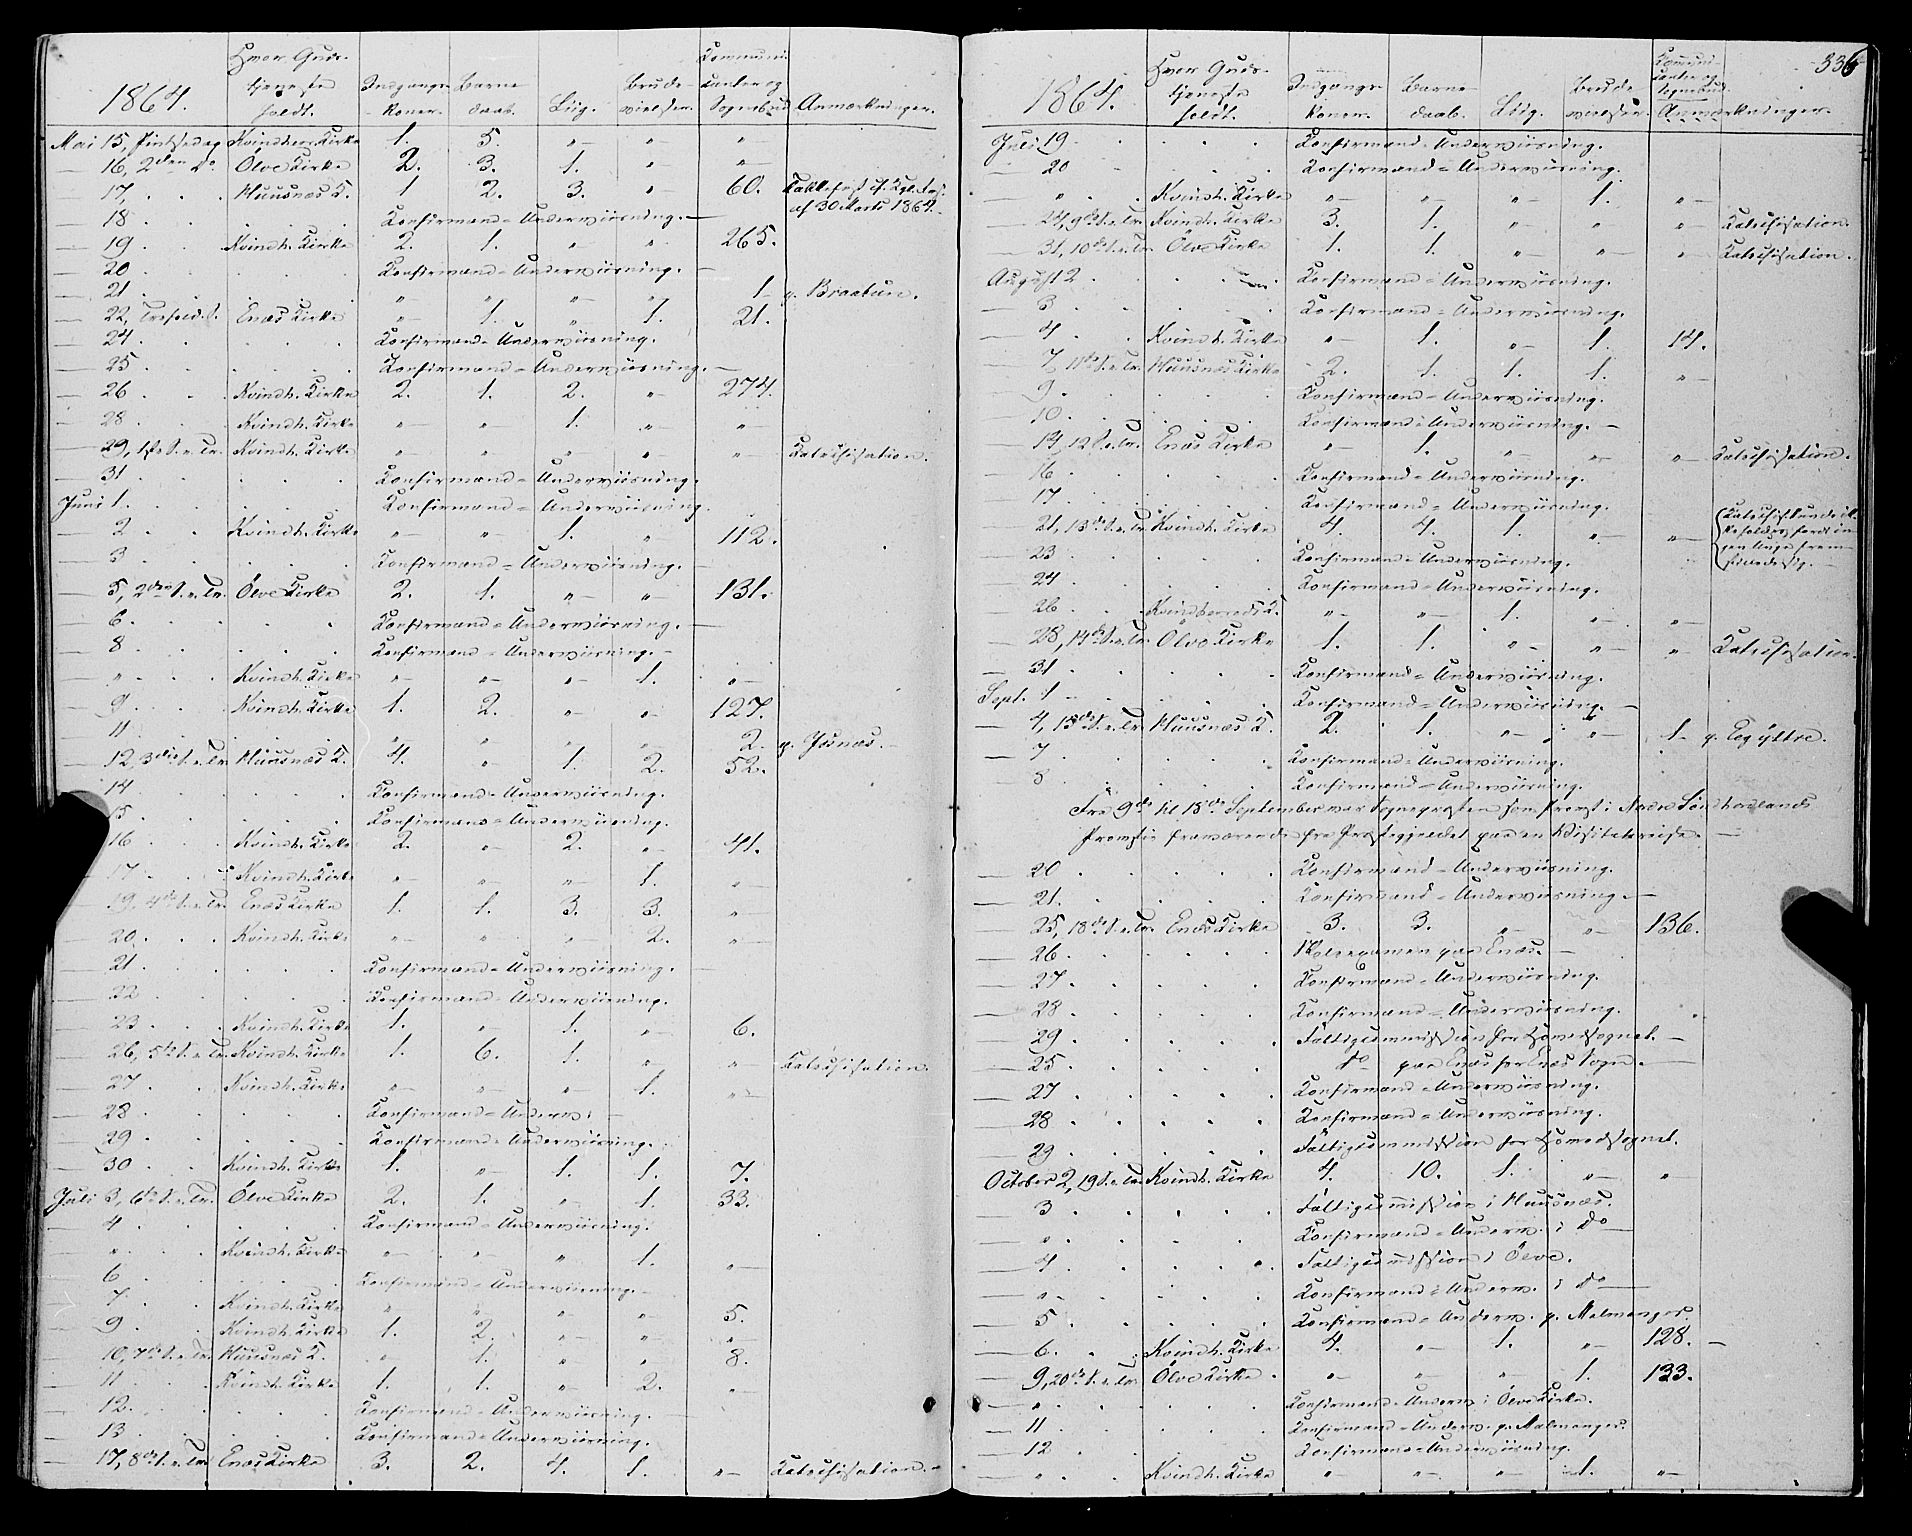 1864. Hvor Guds- tjeneste holdt. Indgangs- Koner. Barne daab. Liig. Brude- vielser. Communi- canter og Sognebud Anmærkninger.
Mai 15, Pintsedag Kvindherr. Kirke 1. 5. " " "
16, 2den do Ölve Kirke 2. 3. 1. " "
17, Huusnæs K. 1 2. 3. " 60. Takkefest if. Kgl. Res. af 30 Marts 1864.
18 Konfirmand-Underviisning.
19 Kvindh. Kirke 2. 1. " " 265.
20 Konfirmand-Underviisning.
21 " " " " 1 p. Braatun.
22, Trefold. S. Enæs Kirke " 1. " 1. 21.
24 Konfirmand-Underviisning.
25 Konfirmand-Underviisning.
26 Kvindh. Kirke 2. 1. 2. " 274.
28 Kvindh. Kirke " " 1. " "
29, 1ste S. e. Tr. Kvindh. Kirke " " " " " Katechisation.
31 Konfirmand-Underviisning.
Juni 1. Konfirmand-Underviisning.
2 Kvindh. Kirke " " 1. " 112.
3 Konfirmand-Underviisning.
5, 2den S. e. Tr. Ölve Kirke 2. 1. " " 131.
6 Konfirmand-Underviisning.
8 Konfirmand-Underviisning.
" Kvindh. Kirke " " " 1. "
9 Kvindh. Kirke 1. 2. " " 127.
11 " " " " 2. p.
12, 3die S. e. Tr. Huusnæs K. 4. " 1. 2. 52.
14 Konfirmand-Underviisning.
15 Konfirmand-Underviisning.
16 Kvindh. Kirke 2. " 2. " 41.
17 Kvindh. Kirke " " " 1. "
19, 4de S. e. Tr. Enæs Kirke 1. 1. 3. 3. "
20 Kvindh. Kirke " " " 2. "
21 Konfirmand-Underviisning.
22 Konfirmand-Underviisning.
23 Kvindh. Kirke 1. " 1. " 6.
26, 5te S. e. Tr. Kvindh. Kirke 1. 6. 1. " " Katechisation.
27 Kvindh. Kirke " " " 1. "
28 Konfirmand-Underv.
29 Konfirmand-Underviisning.
30 Kvindh. Kirke 1. " 1. 1. 7.
Juli 3, 6te S. e. Tr. Ölve Kirke 2. 1. " 1. 33.
4 Konfirmand-Underviisning.
" Kvindh. Kirke " " " 1. "
6 Konfirmand-Underviisning.
7 Kvindh. Kirke " " " " 5.
9 Kvindh. Kirke 1. 2. " " "
10, 7de S. e. Tr. Huusnæs K. " 1. " " 8.
11 Kvindh. Kirke 1. 1. " 2. "
12. Konfirmand-Underviisning.
13 Konfirmand-Underviisning.
17, 8de S. e. Tr. Enæs Kirke 3. 2. 4. 1. " Katechisation.
336
1864. Hvor Guds- tjeneste holdt. Indgangs- Koner. Barne- daab. Liig. Brude- vielser. Communi- canter og Sognebud. Anmærkninger.
Juli 19 Konfirmand-Underviisning.
20 Konfirmand-Underviisning.
" Kvindh. Kirke " " " 1. "
24, 9de S. e. Tr. Kvindh. Kirke 3. 1. " " " Katechisation.
31, 10de S. e. Tr. Ölve Kirke 1. 1. " " " Katechisation.
August 2 Konfirmand-Underviisning.
3 Konfirmand-Underviisning.
4 Kvindh. Kirke " 1. " 1. 14.
7, 11te S. e. Tr. Huusnæs Kirke 2. 1. 1. 1. "
9 Konfirmand-Underviisning.
10 Konfirmand-Underviisning.
14, 12 S. e. Tr. Enæs Kirke " 1. " " " Katechisation.
16 Konfirmand-Underviisning.
17 Konfirmand-Underviisning.
21, 13de S. e. Tr. Kvindh. Kirke 4. 4. 1. " " Katechis. kunde ik- ke holdes, fordi in- gen Unge frem- stillede sig.
23 Konfirmand-Underviisning.
24 Konfirmand-Underviisning.
26 Kvindherreds K. " " 1. " "
28, 14de S. e. Tr. Ölve Kirke 1. 1. " " " Katechisation.
31 Konfirmand-Underviisning.
Sept. 1 Konfirmand-Underviisning.
4, 15de S. e. Tr. Huusnæs K. 2. 1. " " 1 p.
7 Konfirmand-Underviisning.
8 Konfirmand-Underviisning.
Fra 9de til 18de September var Sognepresten som Provst i Nordre Söndhordlands
Provstie fraværende fra Præstegjeldet paa en Visitatsreise.
20 Konfirmand-Underviisning.
21. Konfirmand-Underviisning.
25, 18de S. e. Tr. Enæs Kirke 3. 3. " " 136.
26 Skoleexamen paa Enæs.
27 Konfirmand-Underviisning.
28 Konfirmand-Underviisning.
29 Fattigcommission for Hovedsognet.
25 do paa Enæs for Enæs Sogn.
27 Konfirmand-Underviisning.
28 Konfirmand-Underviisning.
29 Fattigcommission for Hovedsognet.
October 2, 19 S. e. Tr. Kvindh. Kirke 4. 10. 1. " "
3 Fattigcommission i Huusnæs.
" Konfirmand-Underv. i do
4 Fattigcommission i Ölve.
" Konfirmand-Underv. i do
5 Konfirmand-Underv. p. Malmanger.
6. Kvindh. Kirke 4. " 1. " 128.
9, 20de S. e. Tr. Ölve Kirke " " " 1. 133.
" Konfirmand-Underv. i Ölve Kirke.
11 Konfirmand-Underv. p. Malmanger.
12 Konfirmand-Underviisning.
" Kvindh. Kirke " " " 1. "